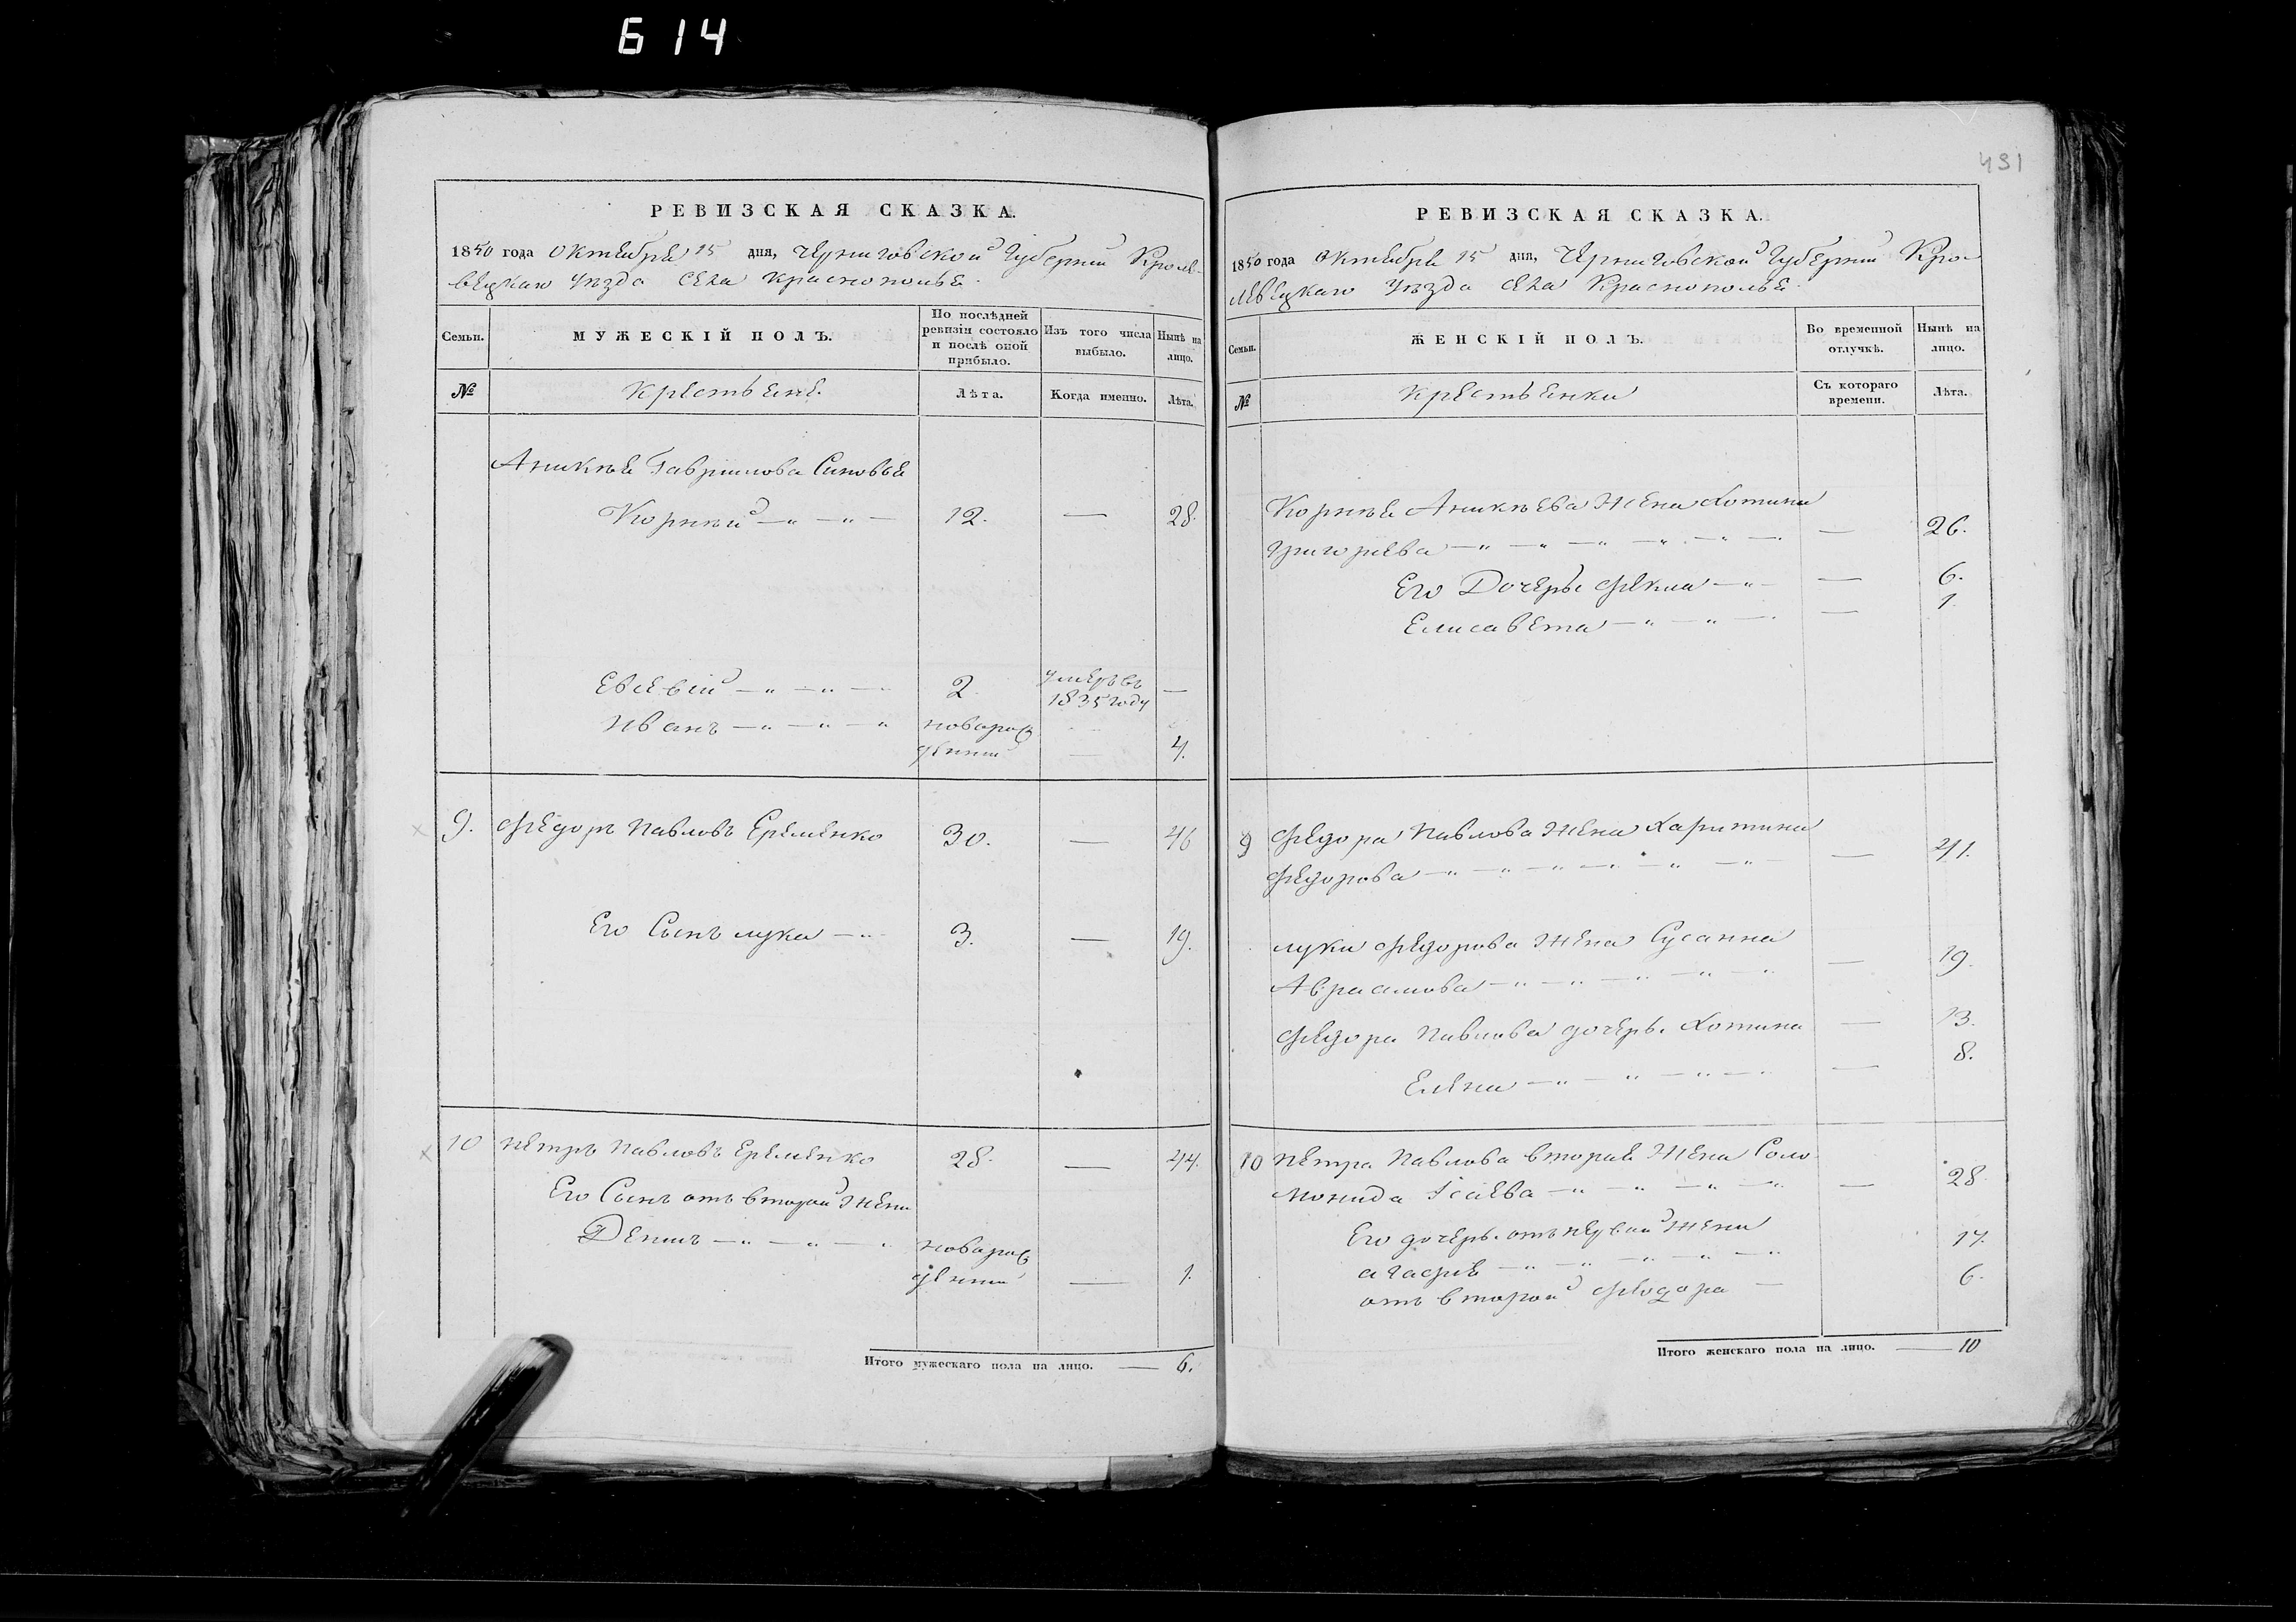 614
РЕВИЗСКАЯ СКАЗКА.
1850 года Октября 15 дня, Черниговской Губерніи Кроле-
вецкаго Уѣзда Села Краснополья.
Семьи.
МУЖЕСКІЙ ПОЛЪ.
По послѣдней
ревизіи состояло
и послѣ оной
прибыло.
Изъ того числа
выбыло.
Нынѣ на
лицо.
№
Крестьяне.
Лѣта.
Когда именно.
Лѣта.
Аникѣя Гаврилова Сыновья
Корнѣй 12. — 28.
Евсевій 2. умеръ въ
1835 году —
Иванъ новорож
денный — 4.
9. Федоръ Павловъ Еременко 30. — 46
Его Сынъ Лука 3. — 19.
10 Петръ Павловъ Еременко 28. — 44.
Его Сынъ отъ второй жены
новорож
денный — 1.
Итого мужескаго пола на лицо. — 6.
431
РЕВИЗСКАЯ СКАЗКА.
1850 года Октября 15 дня, Черниговской Губерніи Кро-
левецкаго Уѣзда Села Краснополья.
Семьи.
ЖЕНСКІЙ ПОЛЪ.
Во временной
отлучкѣ.
Нынѣ на
лицо.
№
Крестьянки
Съ котораго
времени.
Лѣта.
Корнѣя Аникѣева Жена Хотина
Григорьева — 26.
Его Дочери Фекла — 6.
Елисавета — 1.
9 Федора Павлова Жена Харитина
Федорова — 41.
Луки Федорова Жена Сусанна
Авраамова — 19.
Федора Павлова дочери Хотина — 13.
Елена — 8.
10 Петра Павлова вторая Жена Соло
монида Исаева — 28
Его дочери отъ первой жены
Агафія 17.
отъ второй Феодора — 6.
Итого женскаго пола на лицо. — 10